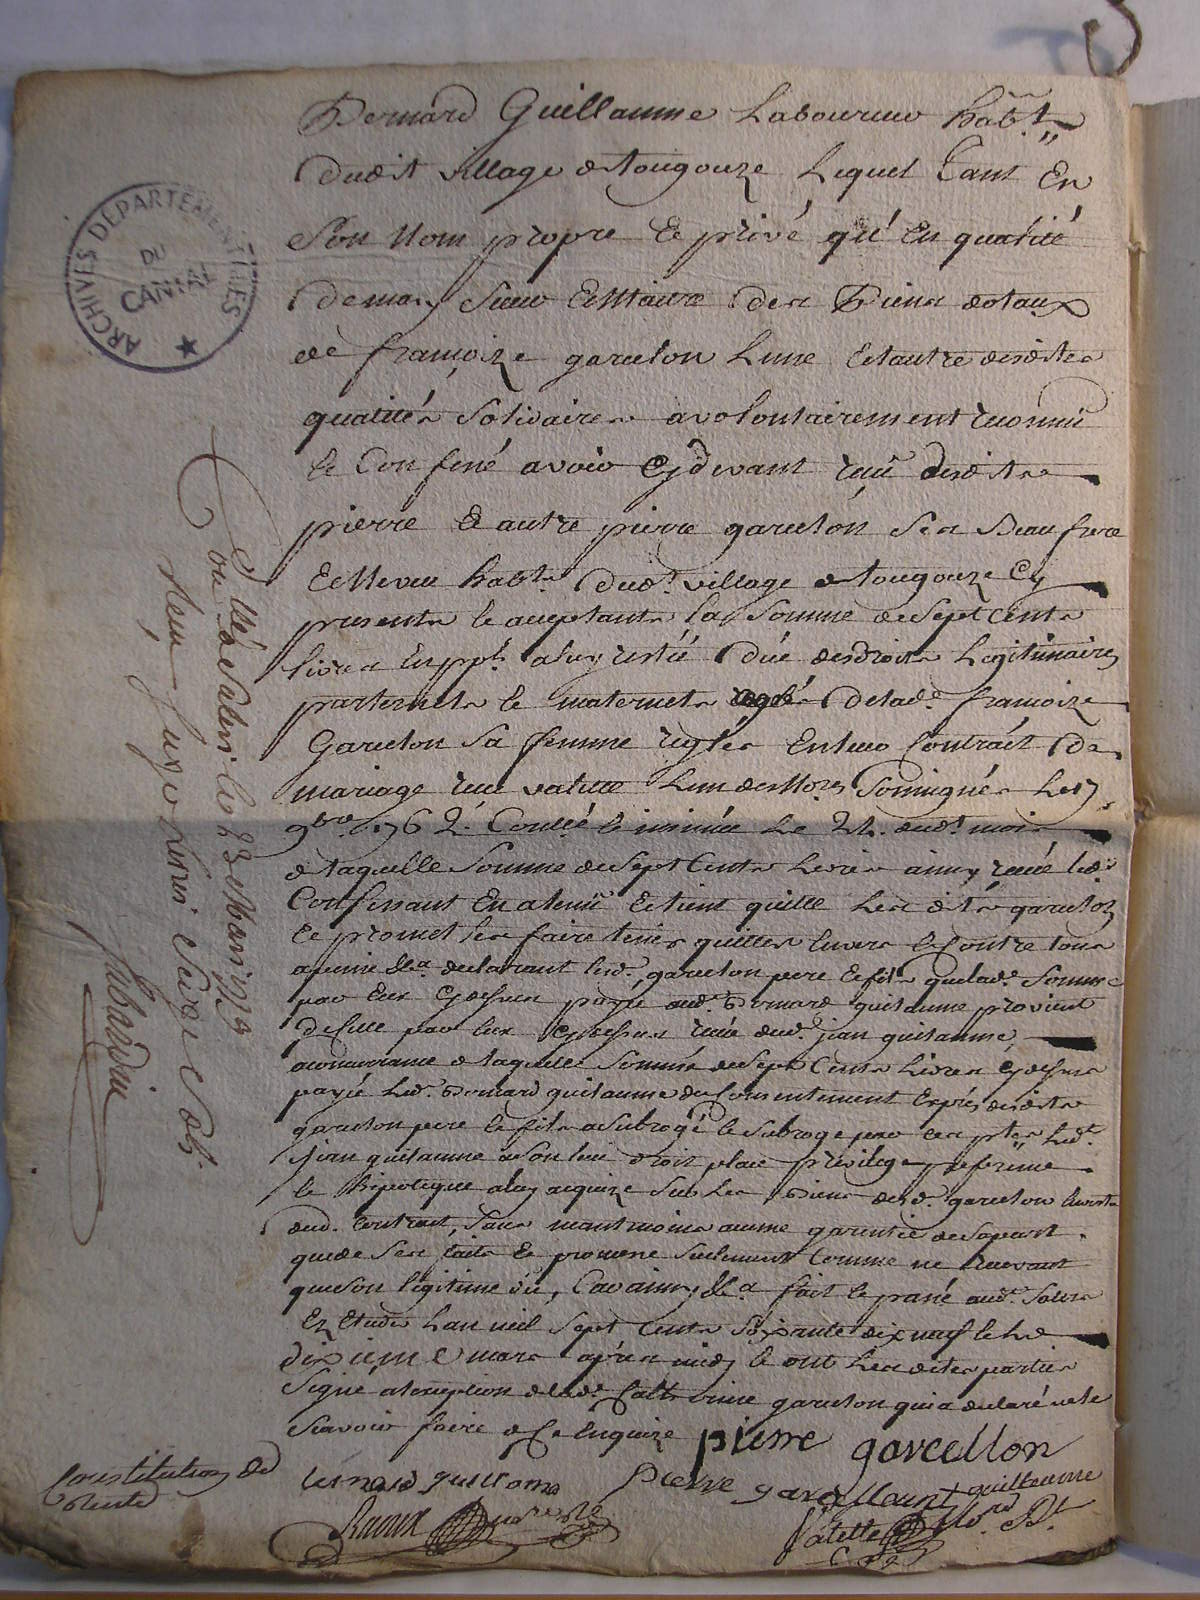 Bernard Guillaume Laboureur habt
dudit village de tougouze Lequel Tant En
Son Nom propre Et privé qu'En qualité
de mary Sieur Et Maitre des Biens dotaux
de françoize garcelon Lune Et lautre desdites
qualités Solidaires a volontairement reconnu
Et Confessé avoir Cydevant reçu desdits
pierre Et autre pierre garcelon Ses Beau frere
Et Neveu habts dudt village de tougouze Cy
presents Et acceptants La Somme de Sept Cents
livres En ppl a luy restée Düe des droits Legitimaires
paternels Et maternels de lade françoize
Garcelon Sa femme reglés En leur Contract de
mariage reçu valette Lun des Nores Soussignés Le 7
9bre 1762. Conllé Et insinué Le 24. dudt mois
de laquelle Somme de Sept Cents Livres ainsy reçue led
Confessant En a tenu Et tient quitte Lesdits garcelon
Et promet les faire tenir quittes Envers Et Contre tous
a peine &a declarant lesd. garcelon pere Et fils que lade Somme
par Eux Cydessus payée aud. Bernard guilaume provient
de Celle par Eux Cydessus reçue dud. jean guilaume,
a concurrance de laquelle Somme de Sept Cents Livres Cydessus
payée Led. Bernard guilaume du Consentement Exprés desdits
garcelon pere Et fils a Subrogé Et Subroge par ces ptes Ledt
jean guilaume a Son lieu droit place privilege preference
Et hipoteque a luy acquize Sur Les Biens desd. garcelon
dud. Contrat, Sans neantmoins aucune garentie de Sa part
que de Ses faits Et promesse Seulement Comme ne recevant
que Son legitime dû, Car ainsy &a fait Et passé audt Salers
En Etude Lan mil Sept Cents Soixante dix neuf Et Le
dixieme mars aprés midy Et ont Lesdites parties
Signé a lexception de lade Catherine garcelon qui a declaré ne le
Scavoir faire de Ce Enquize pierre garcellon
bernard guillaume Pierre garcellon guilleaume
Valette Nore Rt
Conllé a Salers Le 23 Mars 1779
Reçu
Constitution de
Rente
ARCHIVES DEPARTEMENTALES
DU
CANTAL